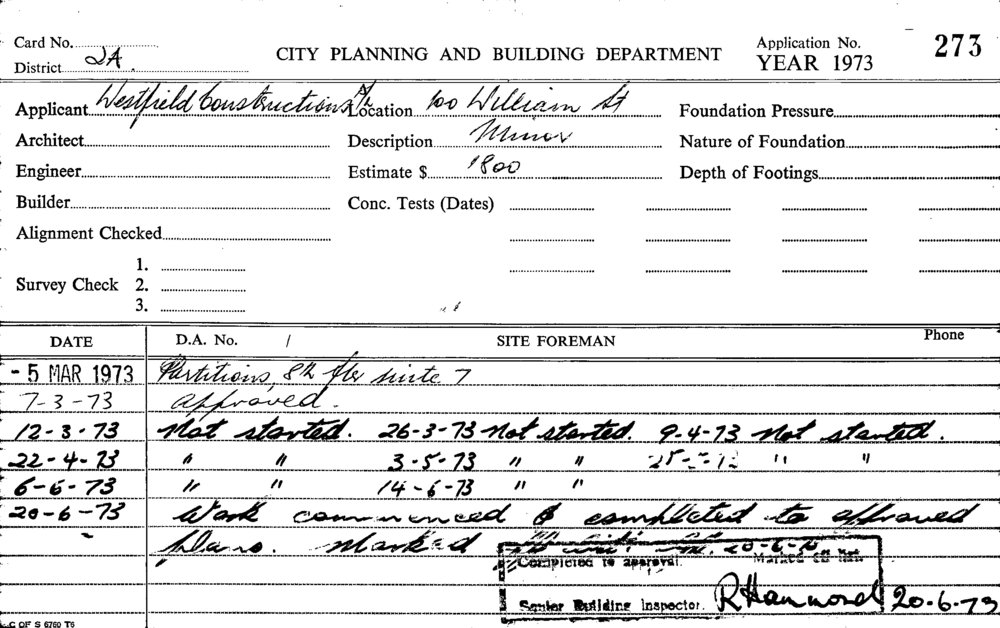 Card No.
District 2A
CITY PLANNING AND BUILDING DEPARTMENT
Application No. 273
YEAR 1973
Applicant Westfield Constructions P/L Location 100 William St Foundation Pressure
Architect Description Minor Nature of Foundation
Engineer Estimate $ 1800 Depth of Footings
Builder Conc. Tests (Dates)
Alignment Checked
Survey Check 1.
2.
3.
DATE D.A. No. / SITE FOREMAN Phone
- 5 MAR 1973 Partitions, 8th flr suite 7
7-3-73 approved.
12-3-73 Not started. 26-3-73 Not started. 9-4-73 Not started.
22-4-73 " " 3-5-73 " " " "
6-6-73 " " 14-6-73 " "
20-6-73 Work commenced & completed to approved
plans. Marked 20-6-
Completed to approval. Marked off
Senior Building Inspector. R Hammond 20.6.73
C OF S 6760 T6